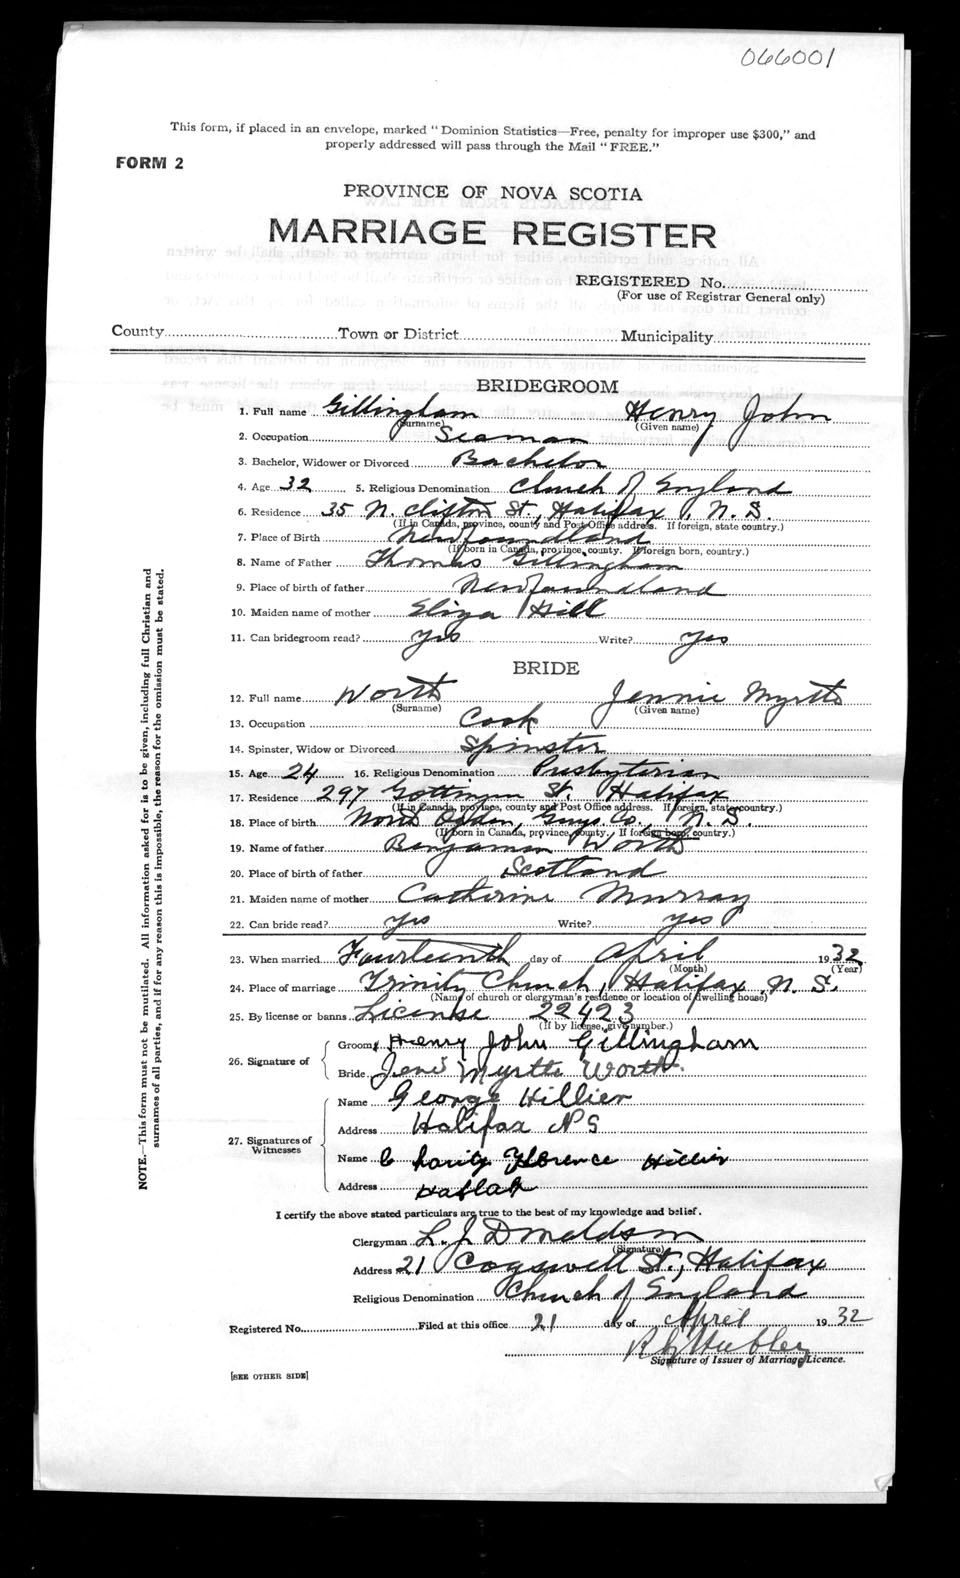 066001
This form, if placed in an envelope, marked "Dominion Statistics—Free, penalty for improper use $300," and
properly addressed will pass through the Mail "FREE."
FORM 2
PROVINCE OF NOVA SCOTIA
MARRIAGE REGISTER
REGISTERED No.
(For use of Registrar General only)
County Town or District Municipality
BRIDEGROOM
1. Full name Gillingham Henry John
(Surname) (Given name)
2. Occupation Seaman
3. Bachelor, Widower or Divorced Bachelor
4. Age 32 5. Religious Denomination Church of England
6. Residence 35 N. Clifton St., Halifax, N. S.
(If in Canada, province, county and Post Office address. If foreign, state country.)
7. Place of Birth Newfoundland
(If born in Canada, province, county. If foreign born, country.)
8. Name of Father Thomas Gillingham
9. Place of birth of father Newfoundland
10. Maiden name of mother Eliza Hill
11. Can bridegroom read? Yes Write? Yes
BRIDE
12. Full name Worth Jennie Myrtle
(Surname) (Given name)
13. Occupation Cook
14. Spinster, Widow or Divorced Spinster
15. Age 24 16. Religious Denomination Presbyterian
17. Residence 297 Gottingen St. Halifax
(If in Canada, province, county and Post Office address. If foreign, state country.)
18. Place of birth North Ogden, Guys. Co., N. S.
(If born in Canada, province, county. If foreign born, country.)
19. Name of father Benjamin Worth
20. Place of birth of father Scotland
21. Maiden name of mother Catherine Murray
22. Can bride read? Yes Write? Yes
23. When married Fourteenth day of April 1932
(Month) (Year)
24. Place of marriage Trinity Church, Halifax N. S.
(Name of church or clergyman's residence or location of dwelling house)
25. By license or banns License 22423
(If by license, give number.)
26. Signature of
Groom Henry John Gillingham
Bride Myrtle Worth
27. Signatures of Witnesses
Name George Hillier
Address Halifax N S
Name Charity Florence Hillier
Address
I certify the above stated particulars are true to the best of my knowledge and belief.
Clergyman L. J. Donaldson
(Signature)
Address 21 Cogswell St., Halifax
Religious Denomination Church of England
Registered No. Filed at this office 21 day of April 1932
Signature of Issuer of Marriage Licence.
[SEE OTHER SIDE]
NOTE.—This form must not be mutilated. All information asked for is to be given, including full Christian and
surnames of all parties, and if for any reason this is impossible, the reason for the omission must be stated.